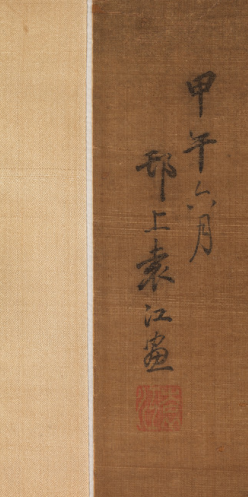 甲午六月
邗上袁江畫